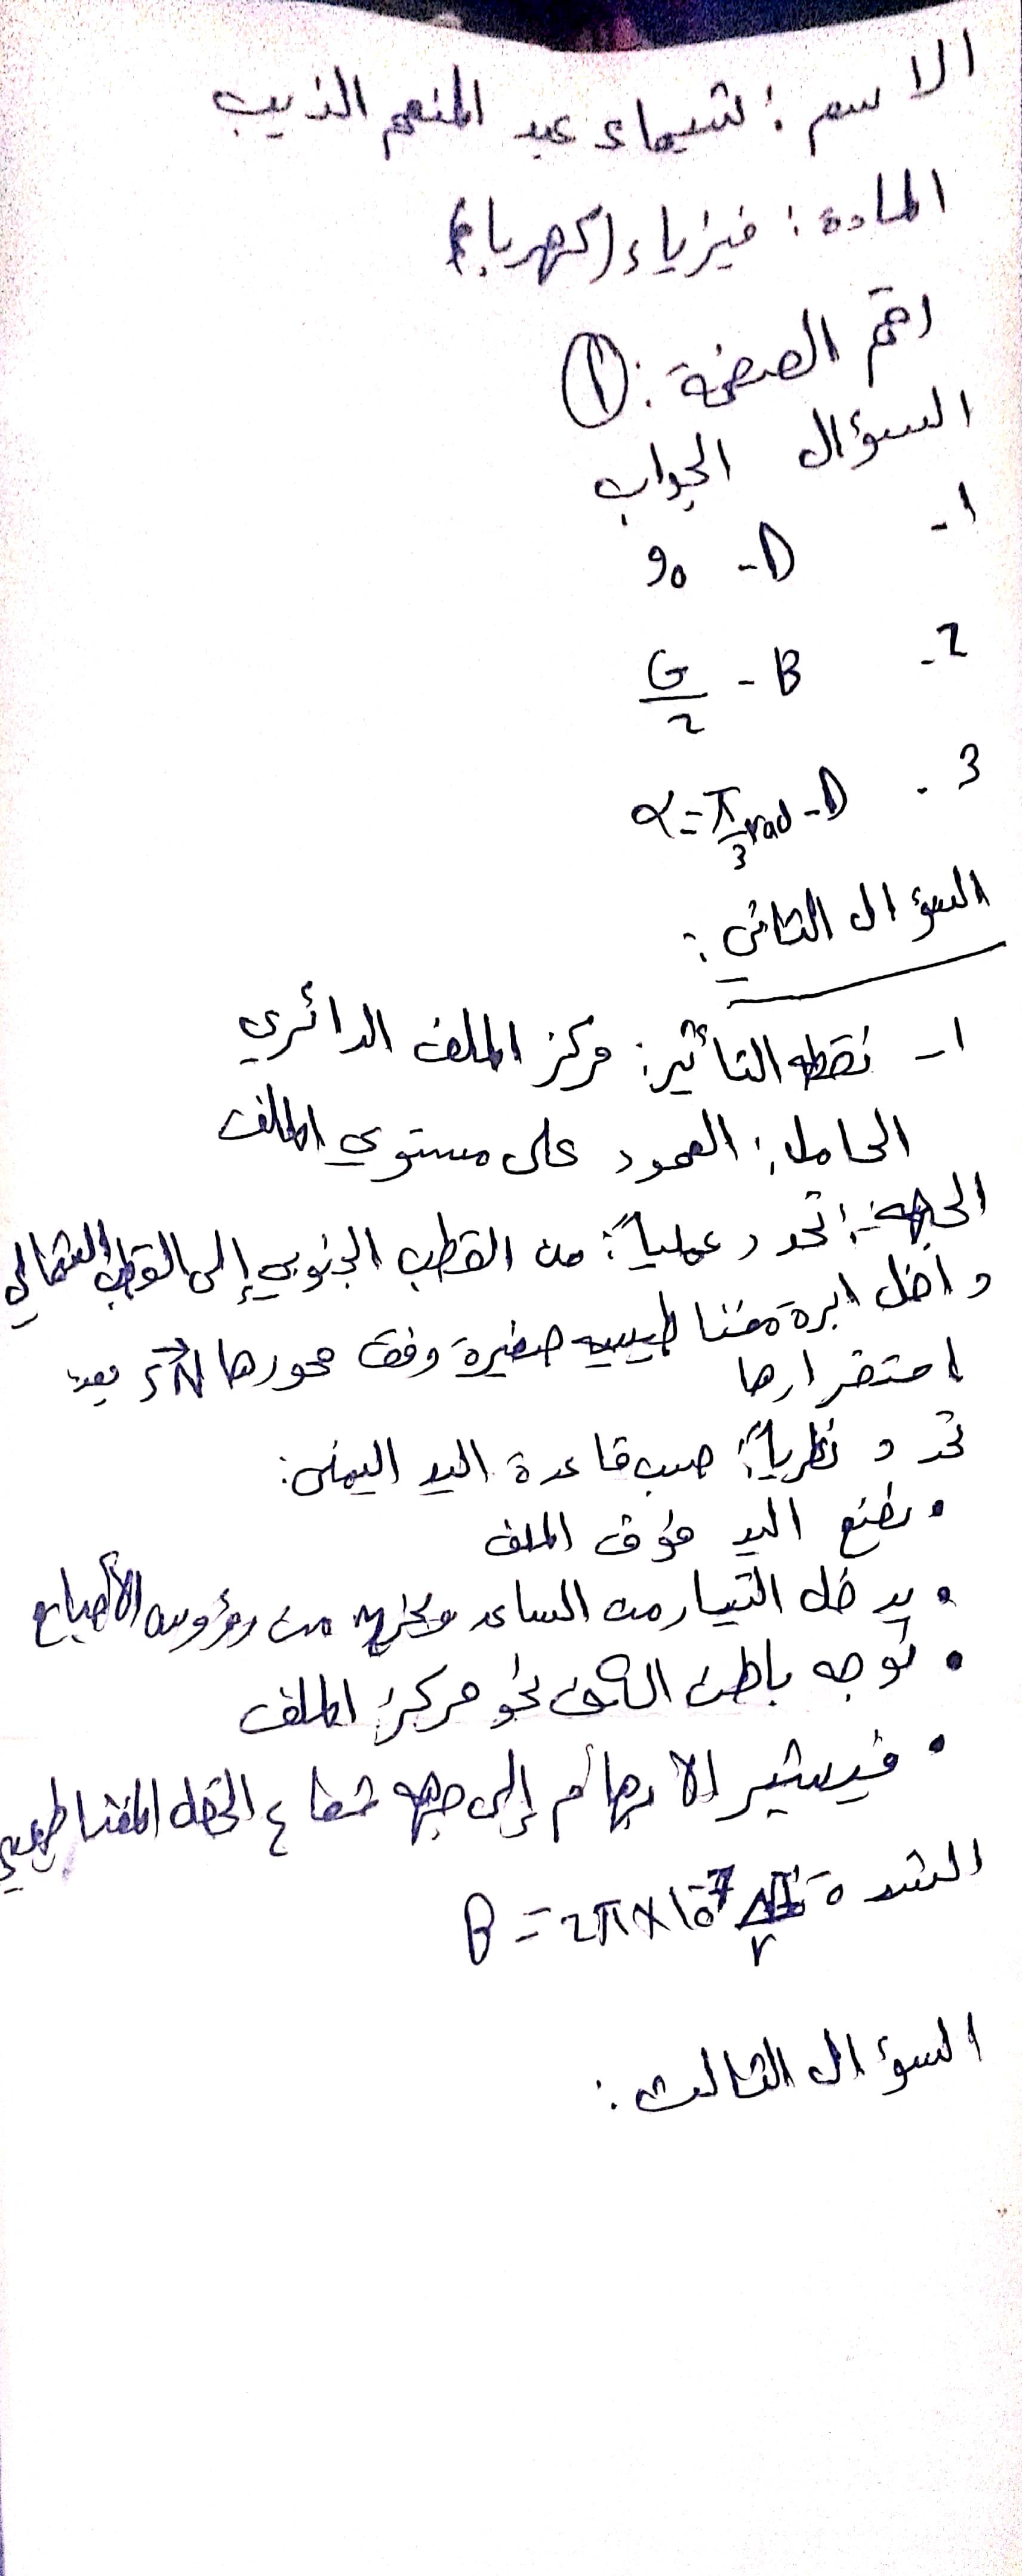 الاسم : شيماء عبد المنعم الذيب
المادة : فيزياء (كهرباء)
رقم الصفحة : ①
السؤال الجواب
1- D- 90
2- B - G/2
3- D- α = π/3 rad
السؤال الثاني :
1- نقطة التأثير : مركز الملف الدائري
الحامل : العمود على مستوي الملف
الجهة : تحدد عملياً : من القطب الجنوبي إلى القطب الشمالي
داخل ابرة مغناطيسية صغيرة وفق محورها SN بعد
استقرارها
تحدد نظرياً : حسب قاعدة اليد اليمنى :
• نضع اليد فوق الملف
• يدخل التيار من الساعد ويخرج من رؤوس الأصابع
• نوجه باطن الكف نحو مركز الملف
• فيشير الابهام إلى جهة شعاع الحقل المغناطيسي
الشدة B = 2π×10⁻⁷ NI/r
السؤال الثالث :